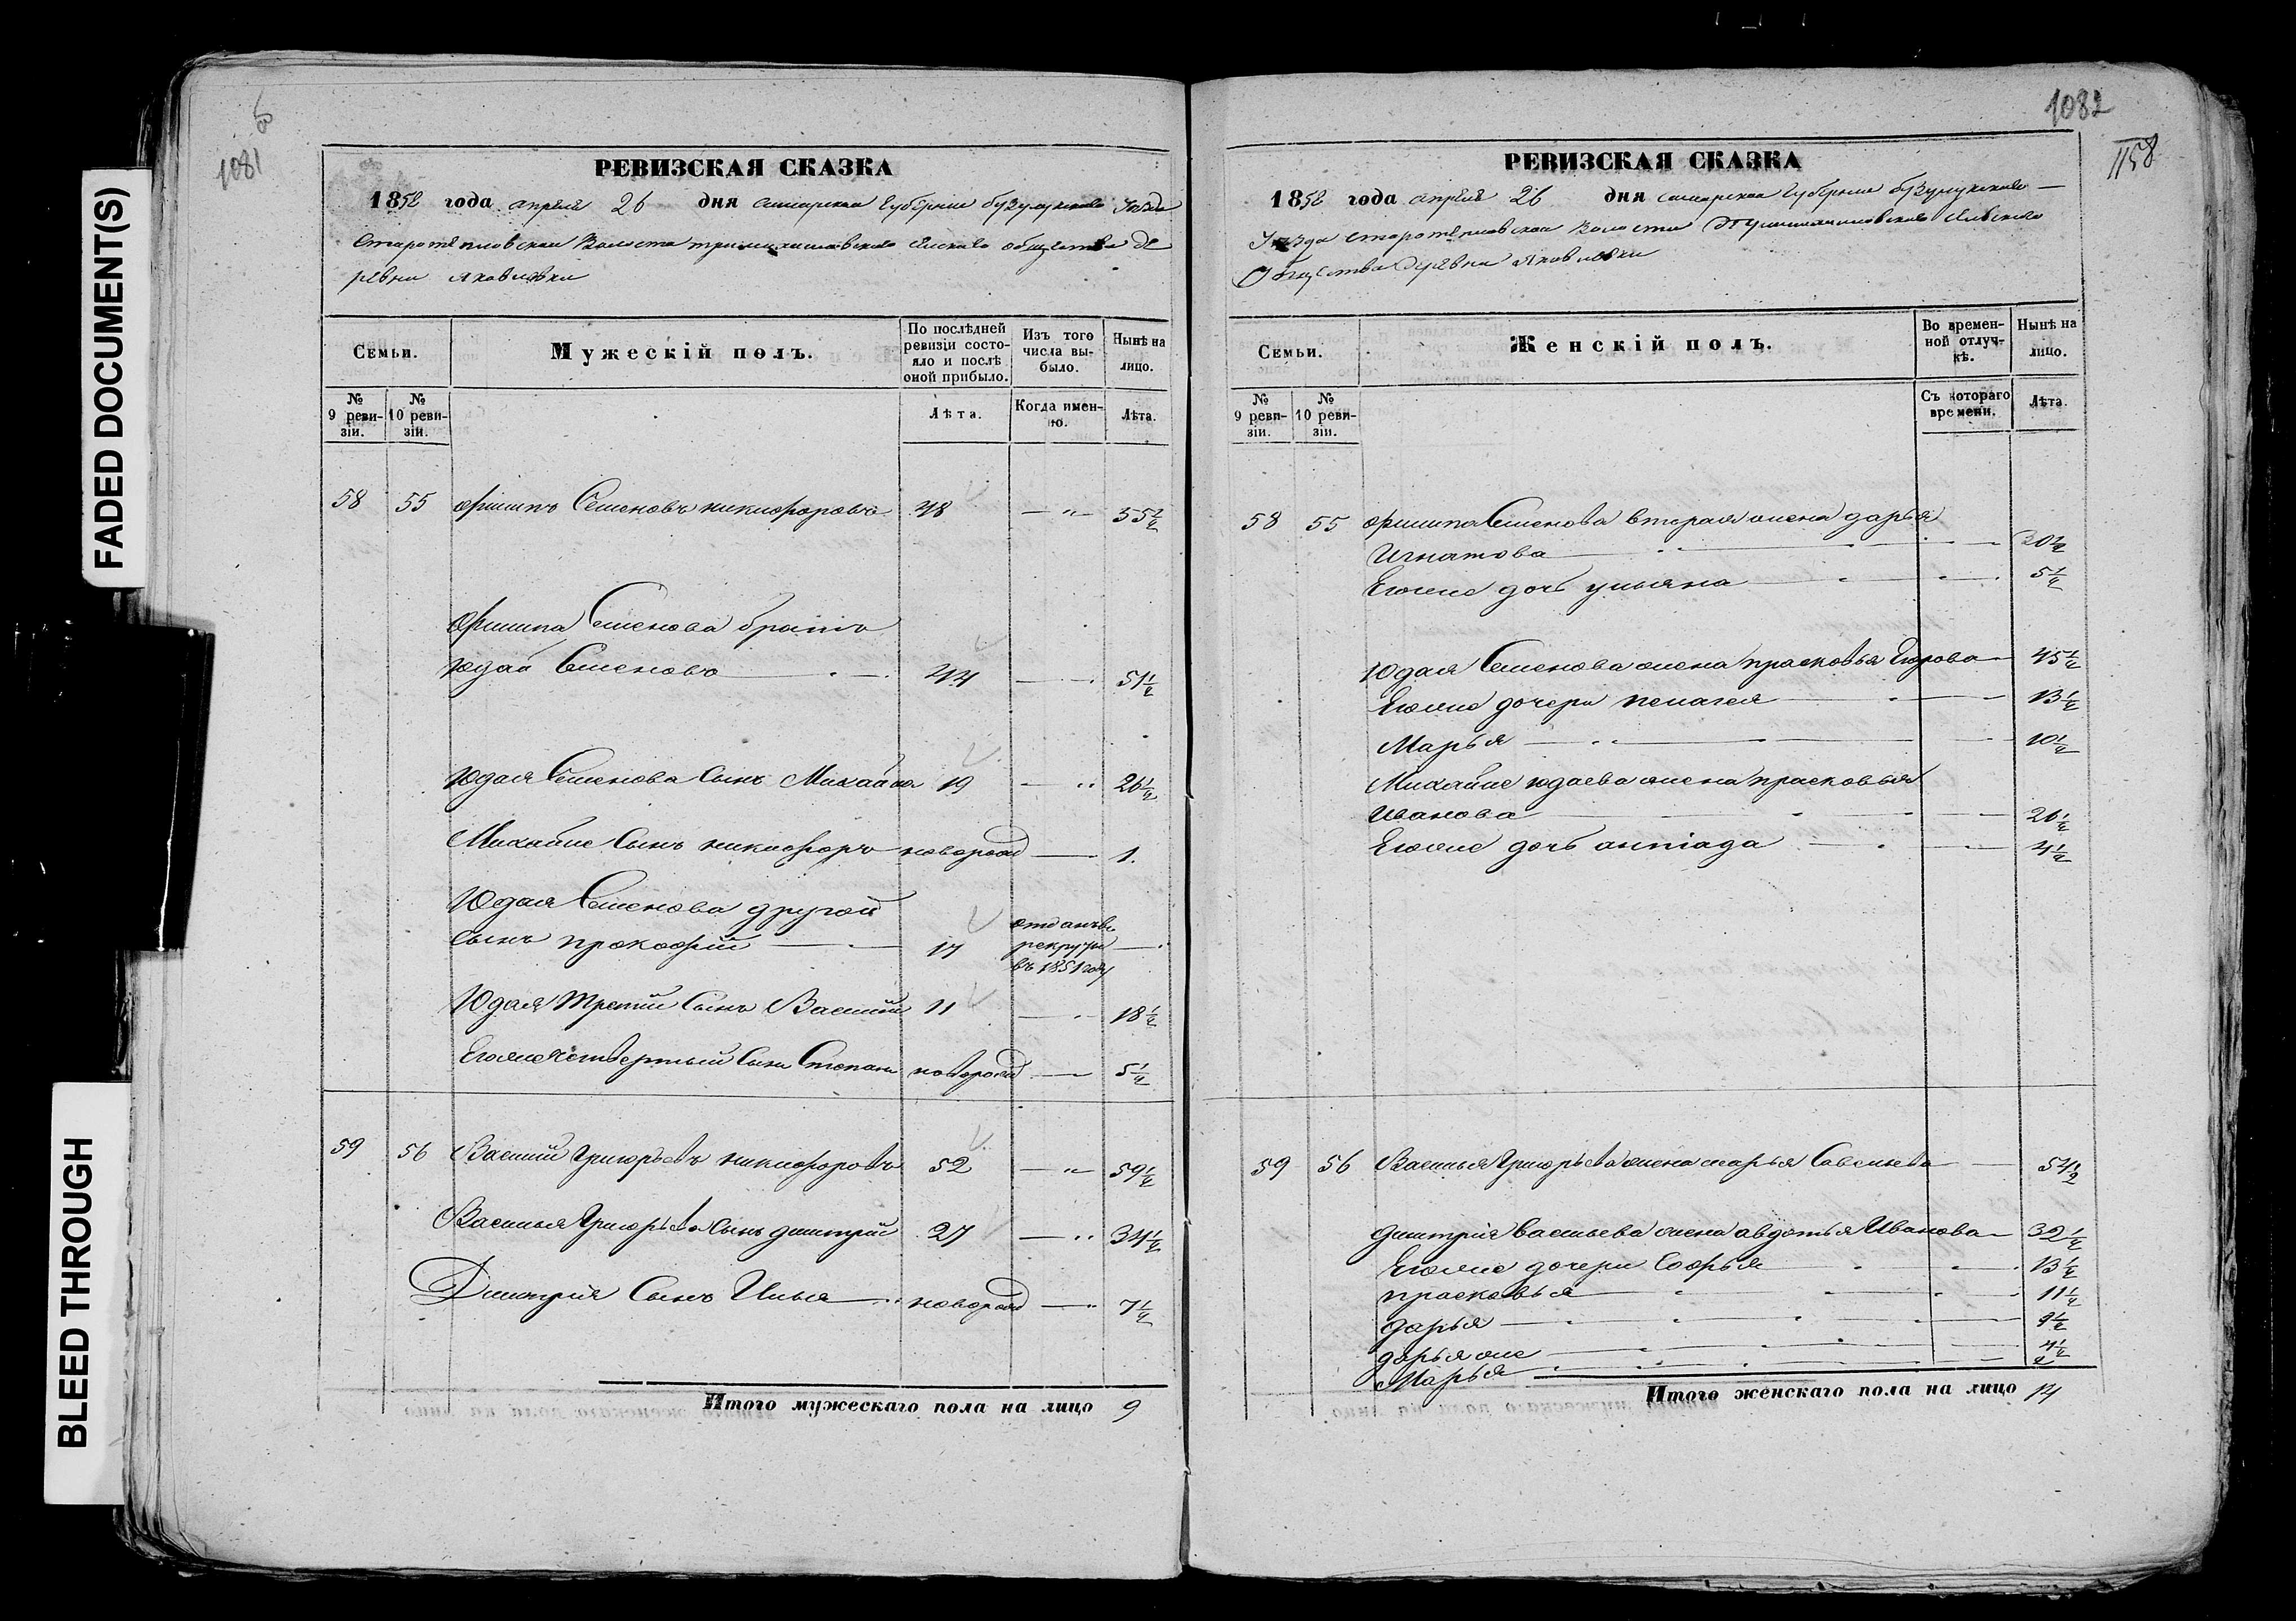 FADED DOCUMENT(S)
BLEED THROUGH
1081
РЕВИЗСКАЯ СКАЗКА
1858 года апреля 26 дня самарской Губернии бузулукского Уезда
Старотепловской Волости сельского общества де
ревни яковлевки
Семьи.
Мужескій полъ.
По послѣдней ревизіи состояло и послѣ оной прибыло.
Изъ того числа выбыло.
Нынѣ на лицо.
№ 9 ревизіи.
№ 10 ревизіи.
Лѣта.
Когда именно.
Лѣта.
58 55 филипъ Семеновъ никифоровъ 48 — " 55½
филипа Семенова братъ
юдай Семеновъ 44 — 51½
Юдая Семенова Сынъ Михайла 19 — " 26½
Михайлы Сынъ никифоръ новорожд — 1.
Юдая Семенова другой
сынъ прокофій — 17 отданъ въ рекруты въ 1851 году —
Юдая третій Сынъ Василий 11 — 18½
Егоже четвертый Сынъ Степанъ новорожд — 5½
59 56 Василий Григорьевъ никифоровъ 52 — " 59½
Василья Григорьева Сынъ дмитрий 27 — " 34½
Дмитрия Сынъ Илья новорожд — " 7½
Итого мужескаго пола на лицо 9
1082
1158
РЕВИЗСКАЯ СКАЗКА
1858 года апреля 26 дня самарской Губернии бузулукского —
Уезда старотепловской волости сельского
Общества деревни яковлевки
Семьи.
Женскій полъ.
Во временной отлучкѣ.
Нынѣ на лицо.
№ 9 ревизіи.
№ 10 ревизіи.
Съ котораго времени.
Лѣта.
58 55 филипа Семенова вторая жена дарья
Игнатова — 30½
Егоже дочь ульяна — 5½
Юдая Семенова жена прасковья Егорова — 45½
Егоже дочери пелагея — 13½
Марья — 10½
Михайлы юдаева жена прасковья
Иванова — 26½
Егоже дочь — 4½
59 56 Василья Григорьева жена марья Савельева — 54½
дмитрия Васильева жена авдотья Иванова — 32½
Егоже дочери Софья — 13½
прасковья — 11½
дарья — 9½
дарья же — 4½
Марья —
Итого женскаго пола на лицо 14